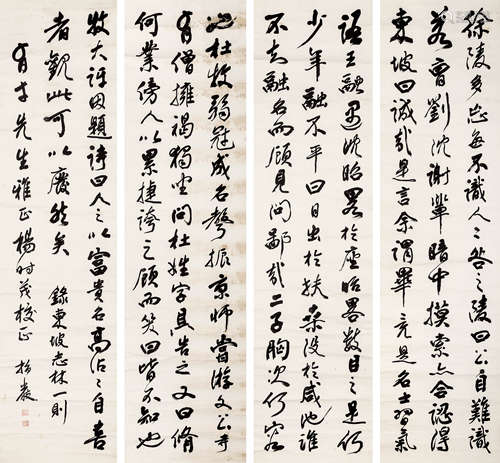 徐陵多忘每不識人人咎之陵曰公自難識
若曹劉沈謝輩暗中摸索亦合認得
東坡曰誠哉是言余謂畢竟是名士習氣
語王融遇沈昭略於座昭略數目之是仍
少年融不平曰日出於扶桑没於咸池誰
不知融名而顧見問鄙哉二子胸次仍窄
杜牧弱冠成名聲振京師嘗游文公寺
有僧擁褐獨坐問杜姓字具告之又曰脩
何業傍人以累捷誇之顧而笑曰皆不知也
牧大訝因題詩曰人人以富貴名高沾沾自喜
者觀此可以廢然矣 錄東坡志林一則
有才先生雅正楊時茂校正 松巖